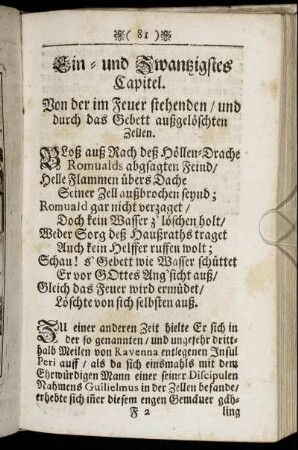 ( 81 )
Ein - und Zwantzigstes
Capitel.
Von der im Feuer stehenden / und
durch das Gebett außgelöschten
Zellen.
BLoß auß Rach deß Höllen-Drache
Romualds abgsagten Feind /
Helle Flammen übers Dache
Seiner Zell außbrochen seynd;
Romuald gar nicht verzaget /
Doch kein Wasser z' löschen holt /
Weder Sorg deß Haußraths traget
Auch kein Helffer ruffen wolt;
Schau! s' Gebett wie Wasser schüttet
Er vor GOttes Ang'sicht auß /
Gleich das Feuer wird ermüdet /
Löschte von sich selbsten auß.
ZU einer anderen Zeit hielte Er sich in
der so genannten / und ungefehr dritt-
halb Meilen von Ravenna entlegenen Insul
Peri auff / als da sich einsmahls mit dem
Ehrwürdigen Mann einer seiner Discipulen
Nahmens Guilielmus in der Zellen befande /
erhebte sich iñer diesem engen Gemäuer gäh-
F 2 ling